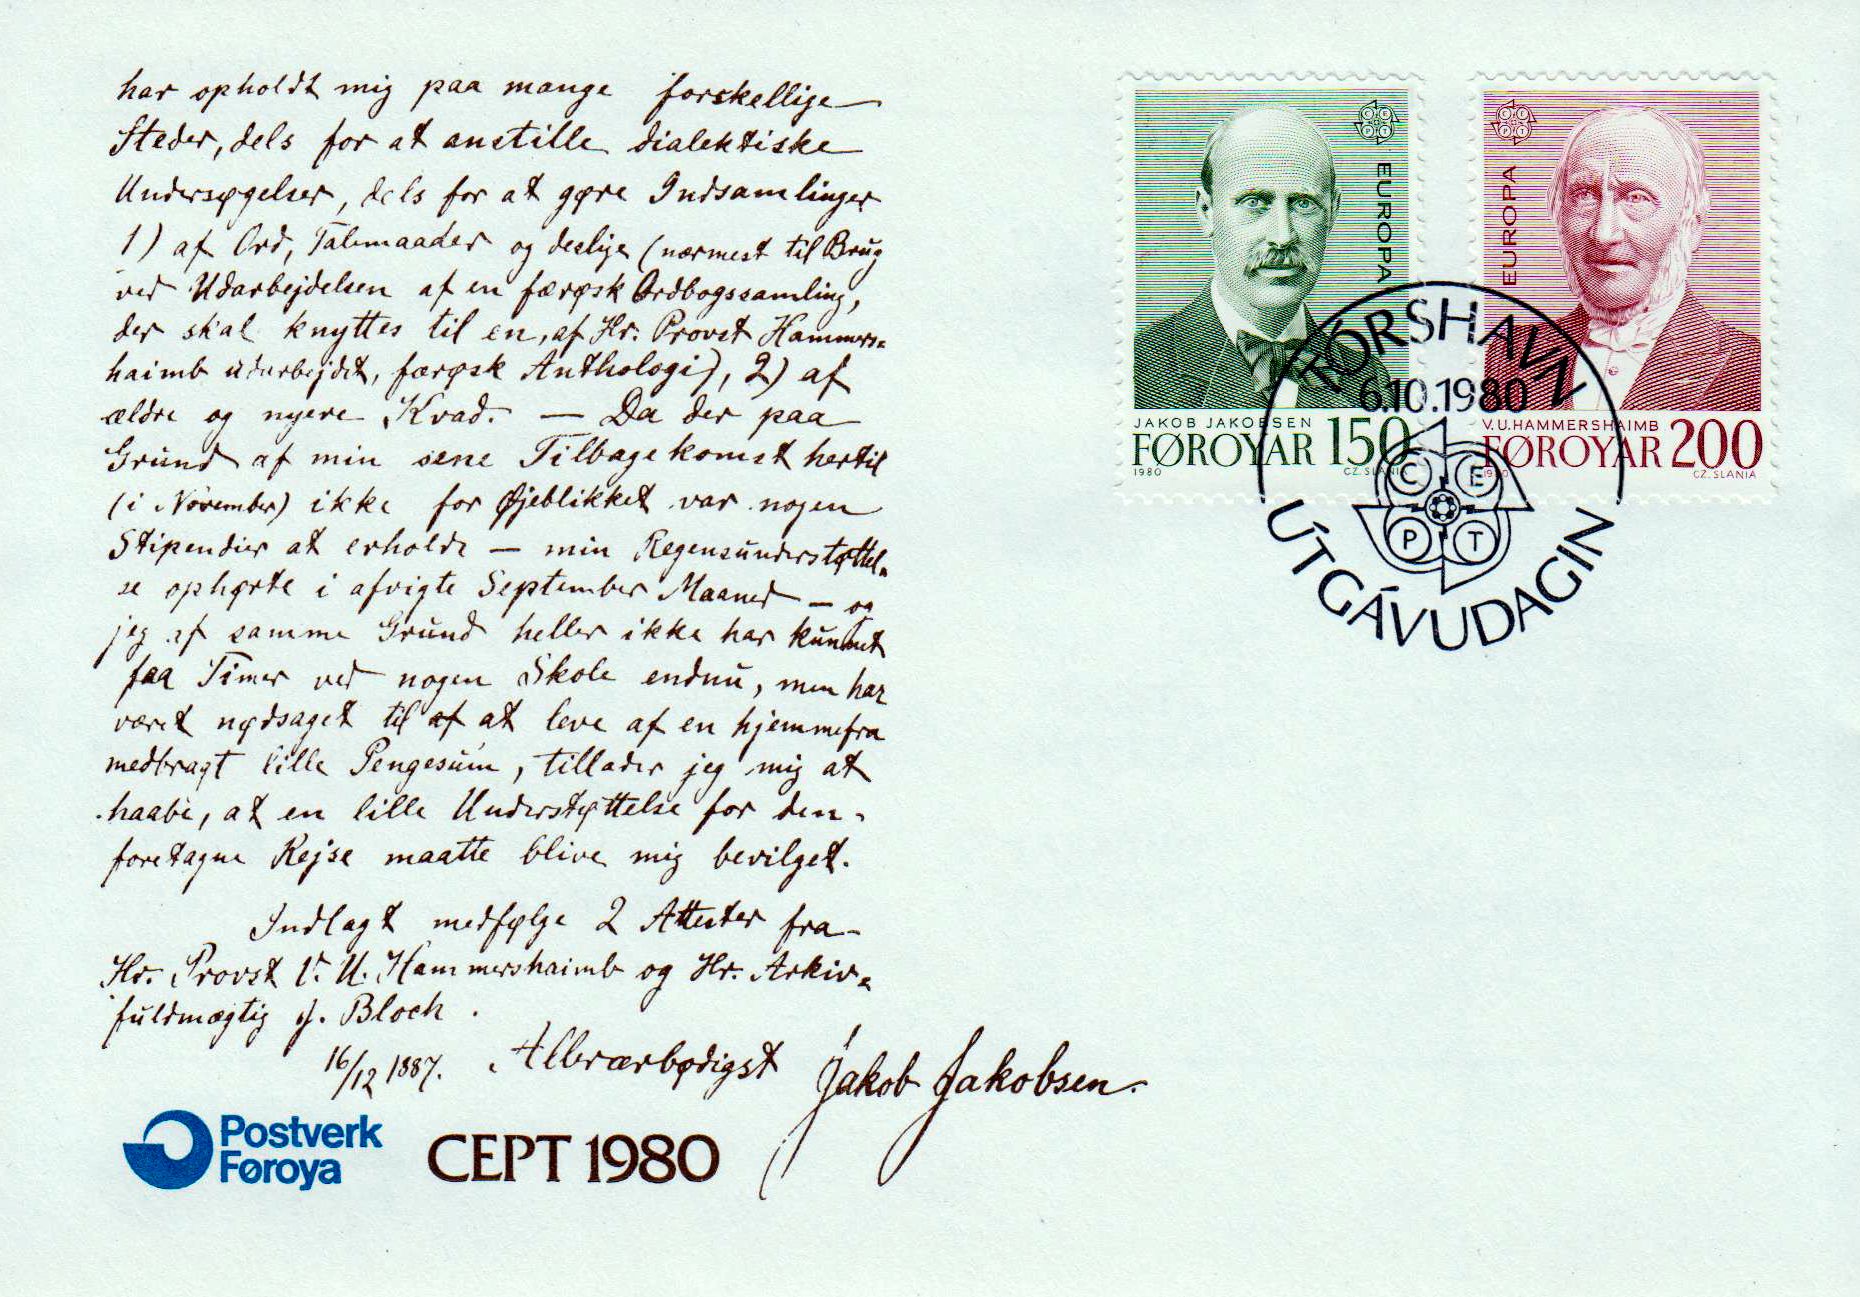 har opholdt mig paa mange forskellige
Steder, dels for at anstille dialektiske
Undersøgelser, dels for at gøre Indsamlinger
1) af Ord, Talemaader og deslige (nærmest til Brug
ved Udarbejdelsen af en færøsk Ordbogssamling,
der skal knyttes til en, af Hr. Provst Hammers=
haimb udarbejdet, færøsk Anthologi), 2) af
ældre og nyere Kvad. — Da der paa
Grund af min sene Tilbagekomst hertil
(i November) ikke for Øjeblikket var nogen
Stipendier at erholde — min Regensunderstøttel=
se ophørte i afvigte September Maaned — og
jeg af samme Grund heller ikke har kunnet
faa Timer ved nogen Skole endnu, men har
været nødsaget til af at leve af en hjemmefra
medbragt lille Pengesum, tillader jeg mig at
haabe, at en lille Understøttelse for den
foretagne Rejse maatte blive mig bevilget.
Indlagt medfølge 2 Attester fra
Hr. Provst V. U. Hammershaimb og Hr. Arkiv=
fuldmægtig J. Bloch.
16/12 1887. Allerærbødigst Jakob Jakobsen.
Postverk
Føroya
CEPT 1980
CEPT
EUROPA
JAKOB JAKOBSEN
FØROYAR 150
1980 CZ. SLANIA
CEPT
EUROPA
V.U. HAMMERSHAIMB
FØROYAR 200
1980 CZ. SLANIA
TÓRSHAVN
6.10.1980
CEPT
ÚTGÁVUDAGIN